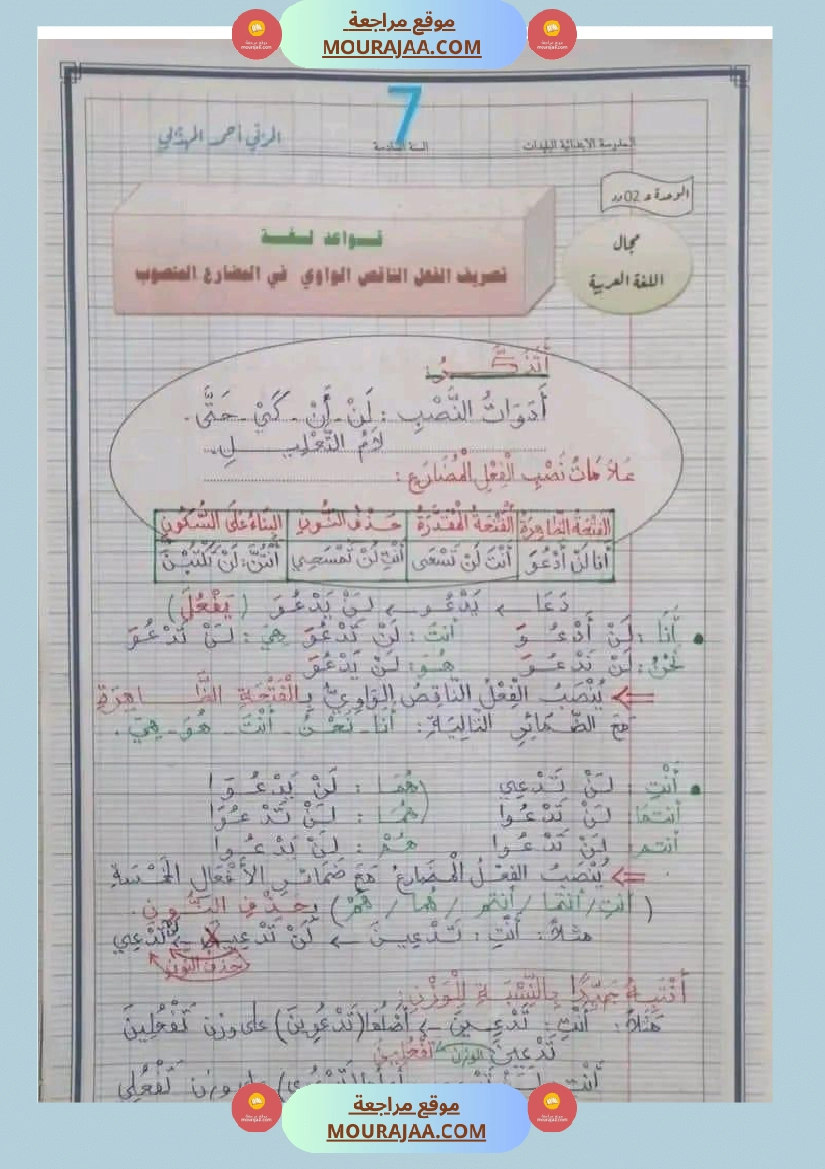 موقع مراجعة
MOURAJAA.COM
7
المدرسة الابتدائية
السنة السادسة
الوحدة ع 02 دد
مجال
اللغة العربية
قواعد لغة
تصريف الفعل الناقص الواوي في المضارع المنصوب
أَتَذَكَّرُ
أَدَوَاتُ النَّصْبِ : لَنْ - أَنْ - كَيْ - حَتَّى -
لَامُ التَّعْلِيلِ لِـ
عَلَامَاتُ نَصْبِ الْفِعْلِ الْمُضَارِعِ :
الْفَتْحَةُ الظَّاهِرَةُ الْفَتْحَةُ الْمُقَدَّرَةُ حَذْفُ النُّونِ الْبِنَاءُ عَلَى السُّكُونِ
أَنَا لَنْ أَدْعُوَ أَنْتَ لَنْ تَسْعَى أَنْتِ لَنْ تَمْسَحِي أَنْتُنَّ: لَنْ تَكْتُبْنَ
دَعَا ← يَدْعُو ← لَنْ يَدْعُوَ (يَفْعُلَ)
• أَنَا : لَنْ أَدْعُوَ أَنْتَ : لَنْ تَدْعُوَ هِيَ : لَنْ تَدْعُوَ
نَحْنُ : لَنْ نَدْعُوَ هُوَ : لَنْ يَدْعُوَ
⇐ يُنْصَبُ الْفِعْلُ النَّاقِصُ الْوَاوِيُّ بِالْفَتْحَةِ الظَّاهِرَةِ
مَعَ الضَّمَائِرِ التَّالِيَةِ : أَنَا - نَحْنُ - أَنْتَ - هُوَ - هِيَ .
• أَنْتِ : لَنْ تَدْعِي هُمَا : لَنْ يَدْعُوَا
أَنْتُمَا : لَنْ تَدْعُوَا هُمَا : لَنْ تَدْعُوَا
أَنْتُمْ : لَنْ تَدْعُوا هُمْ : لَنْ يَدْعُوا
⇐ يُنْصَبُ الْفِعْلُ الْمُضَارِعُ مَعَ ضَمَائِرِ الْأَفْعَالِ الْخَمْسَةِ
( أَنْتِ / أَنْتُمَا / أَنْتُمْ / هُمَا / هُمْ ) بِحَذْفِ النُّونِ .
مَثَلًا : أَنْتِ : تَدْعِينَ ← لَنْ تَدْعِينَ ← لَنْ تَدْعِي
حَذْفُ النُّونِ
أَنْتَبِهُ جَيِّدًا بِالنِّسْبَةِ لِلْوَزْنِ :
مَثَلًا : أَنْتِ : تَدْعِينَ ← أَصْلُهَا (تَدْعُوِينَ) على وزن تَفْعُلِينَ
تَدْعِينَ الوزن تَفْعُلِينَ
موقع مراجعة
MOURAJAA.COM